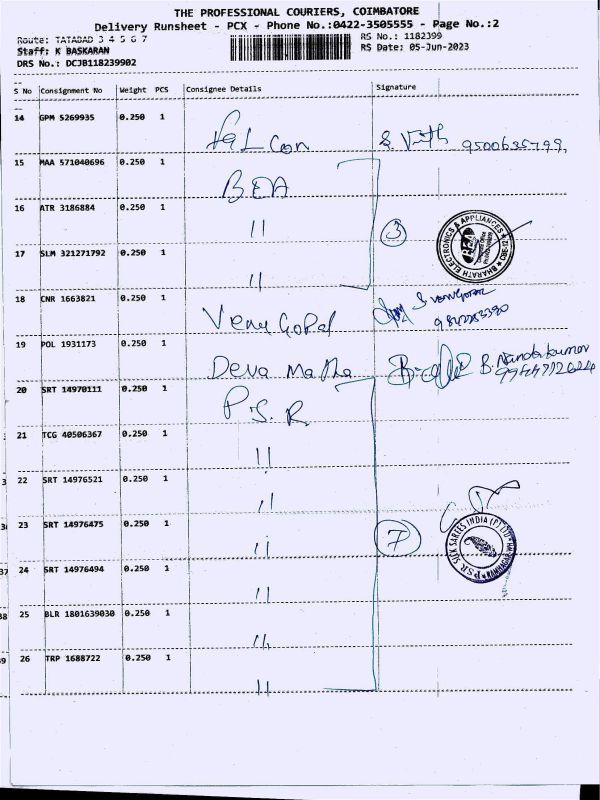 THE PROFESSIONAL COURIERS, COIMBATORE
Delivery Runsheet - PCX - Phone No.:0422-3505555 - Page No.:2
Route: TATABAD 3 4 5 6 7
RS No.: 1182399
Staff: K BASKARAN
RS Date: 05-Jun-2023
DRS No.: DCJB118239902
S No Consignment No Weight PCS Consignee Details Signature
14 GPM 5269935 0.250 1
Fal con S. 9500635799,
15 MAA 571040696 0.250 1
BEA
16 ATR 3186884 0.250 1
11
3
BHARATH ELECTRONICS & APPLIANCES ★ CBE-12 ★
BEA
17 SLM 321271792 0.250 1
11
18 CNR 1663821 0.250 1
Venu GoPal S venugopal
19 POL 1931173 0.250 1
Deva Matha B. Nandakumar
20 SRT 14970111 0.250 1
P.S.R.
21 TCG 40506367 0.250 1
11
22 SRT 14976521 0.250 1
11
23 SRT 14976475 0.250 1
11
7
PSR SILK SAREES INDIA (P) LTD
24 SRT 14976494 0.250 1
11
25 BLR 1801639030 0.250 1
11
26 TRP 1688722 0.250 1
11